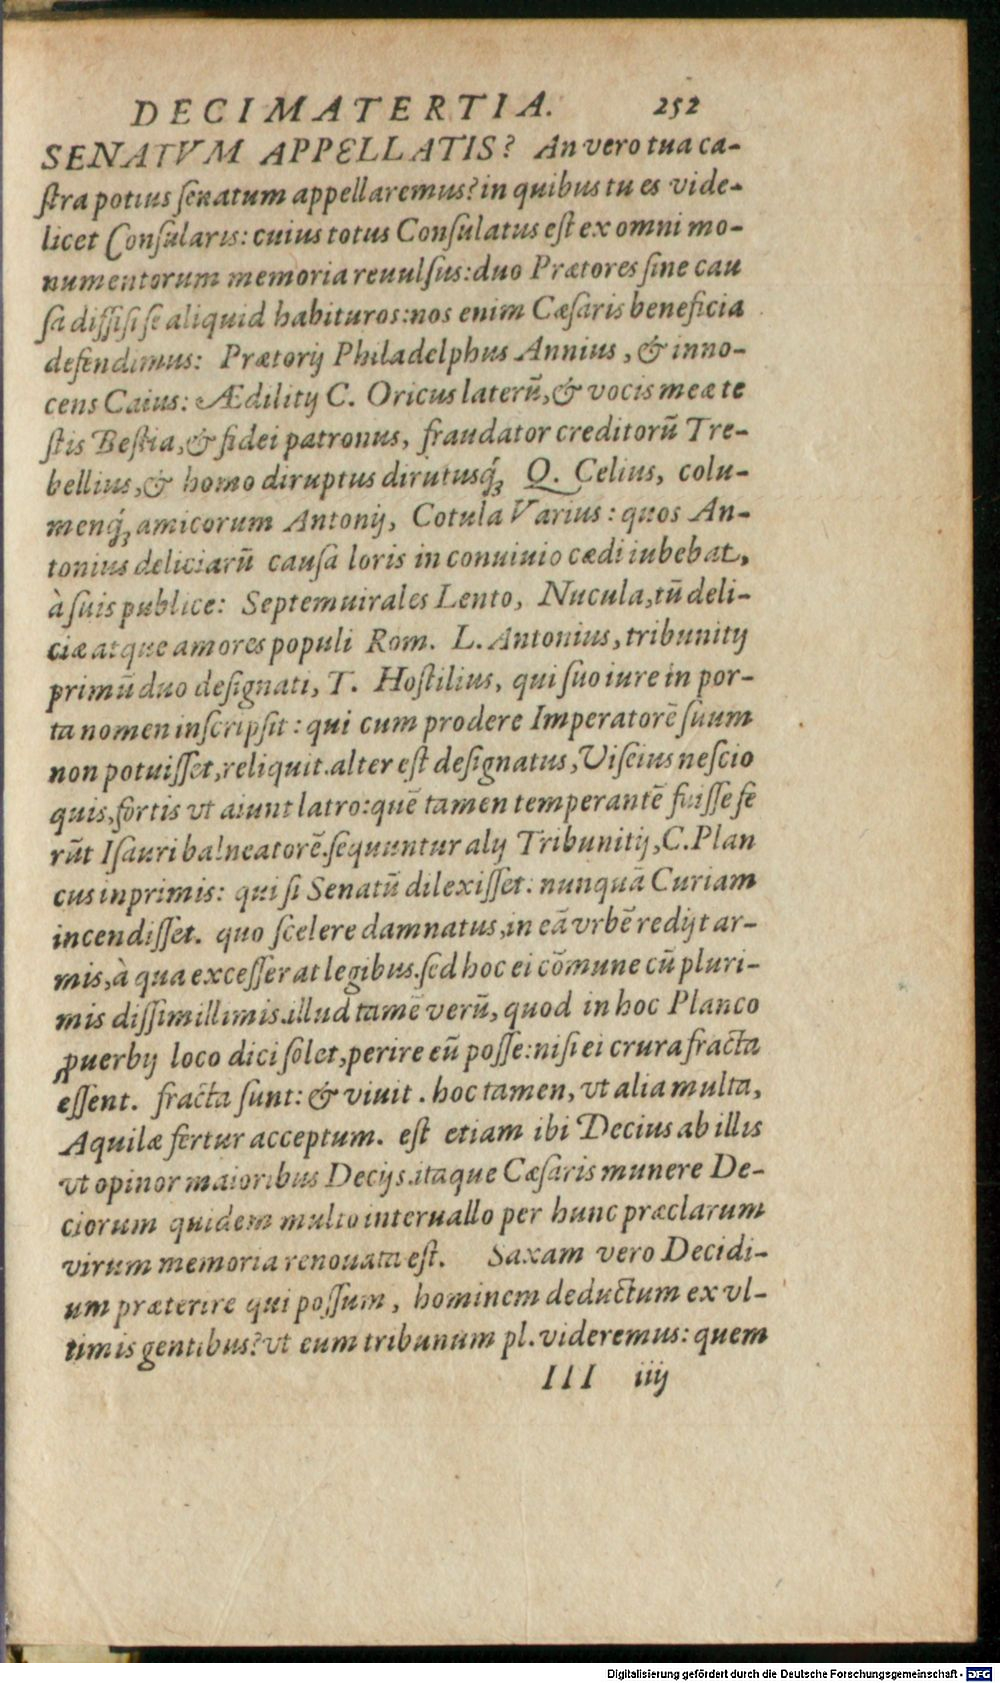 DECIMATERTIA. 252
SENATVM APPELLATIS? An vero tua ca-
ſtra potius ſenatum appellaremus? in quibus tu es vide-
licet Conſularis: cuius totus Conſulatus eſt ex omni mo-
numentorum memoria reuulſus: duo Prætores ſine cau
ſa diffiſi ſe aliquid habituros: nos enim Cæſaris beneficia
defendimus: Prætorij Philadelphus Annius, & inno-
cens Caius: Ædilitij C. Oricus laterũ, & vocis meæ te
ſtis Beſtia, & fidei patronus, fraudator creditorũ Tre-
bellius, & homo diruptus dirutusq́ꝫ Q. Celius, colu-
menq́ꝫ amicorum Antonij, Cotula Varius: quos An-
tonius deliciarũ causa loris in conuiuio cædi iubebat,
à ſuis publice: Septemuirales Lento, Nucula, tũ deli-
ciæ atque amores populi Rom. L. Antonius, tribunitij
primũ duo deſignati, T. Hoſtilius, qui ſuo iure in por-
ta nomen inſcripſit: qui cum prodere Imperatorẽ ſuum
non potuiſſet, reliquit. alter eſt deſignatus, Viſeius neſcio
quis, fortis vt aiunt latro: quẽ tamen temperantẽ fuiſſe fe
rũt Iſauri balneatorẽ. ſequuntur alij Tribunitij, C. Plan
cus inprimis: qui ſi Senatũ dilexiſſet: nunquã Curiam
incendiſſet. quo ſcelere damnatus, in eã vrbẽ redijt ar-
mis, à qua exceſſerat legibus. ſed hoc ei cõmune cũ pluri-
mis diſſimillimis. illud tamẽ verũ, quod in hoc Planco
ꝓuerbij loco dici ſolet, perire eũ poſſe: niſi ei crura fracta
eſſent. fracta ſunt: & viuit. hoc tamen, vt alia multa,
Aquilæ fertur acceptum. eſt etiam ibi Decius ab illis
vt opinor maioribus Decijs. itaque Cæſaris munere De-
ciorum quidem multo interuallo per hunc præclarum
virum memoria renouata eſt. Saxam vero Decidi-
um præterire qui poſſum, hominem deductum ex vl-
timis gentibus? vt eum tribunum pl. videremus: quem
III iiij
Digitalisierung gefördert durch die Deutsche Forschungsgemeinschaft - DFG